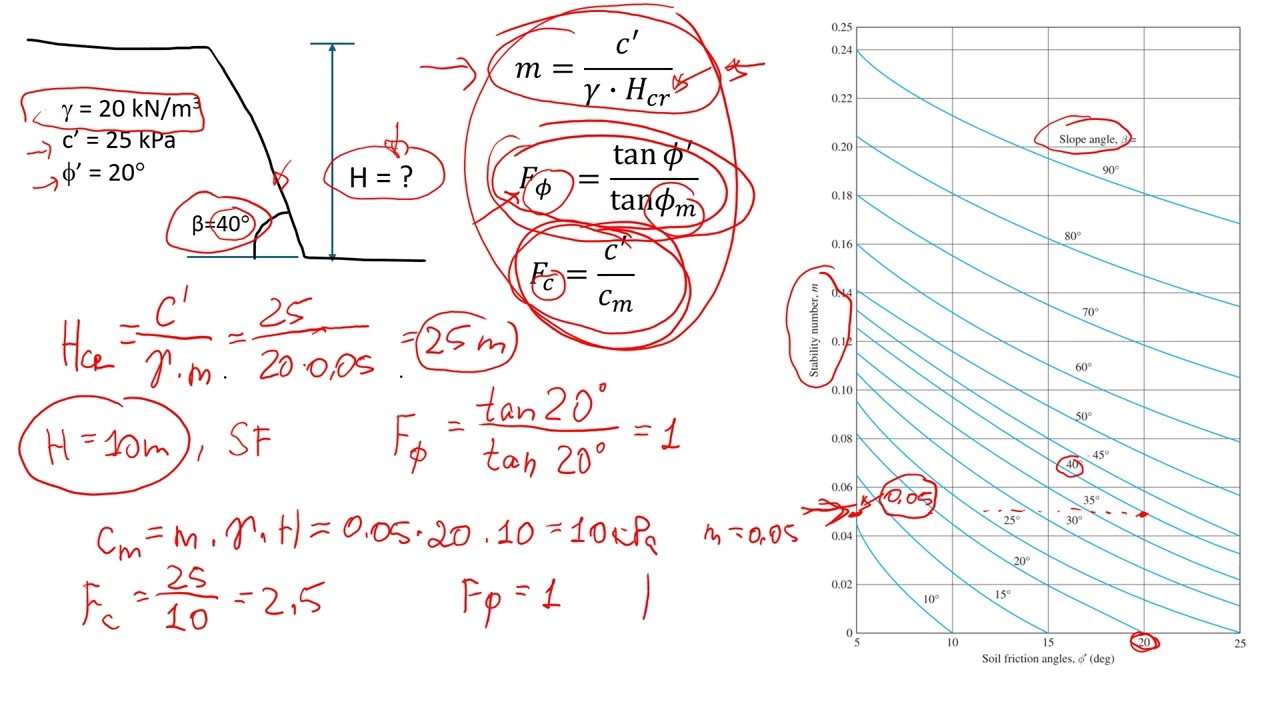 γ = 20 kN/m³
c′ = 25 kPa
ϕ′ = 20°
β=40°
H = ?
m = c′ / γ · H_cr
F_ϕ = tan ϕ′ / tanϕ_m
F_c = c′ / c_m
H_cr = c′ / γ.m. = 25 / 20·0,05 = 25 m
H = 10m, SF
F_ϕ = tan 20° / tan 20° = 1
c_m = m.γ.H = 0.05·20.10 = 10 kPa
m = 0,05
F_c = 25 / 10 = 2,5
F_φ = 1
0.25
0.24
0.22
0.20
0.18
0.16
0.14
0.12
0.10
0.08
0.06
0.04
0.02
0
Stability number, m
Slope angle, β =
90°
80°
70°
60°
50°
45°
40
35°
30°
25°
20°
15°
10°
0,05
5
10
15
20
25
Soil friction angles, ϕ′ (deg)